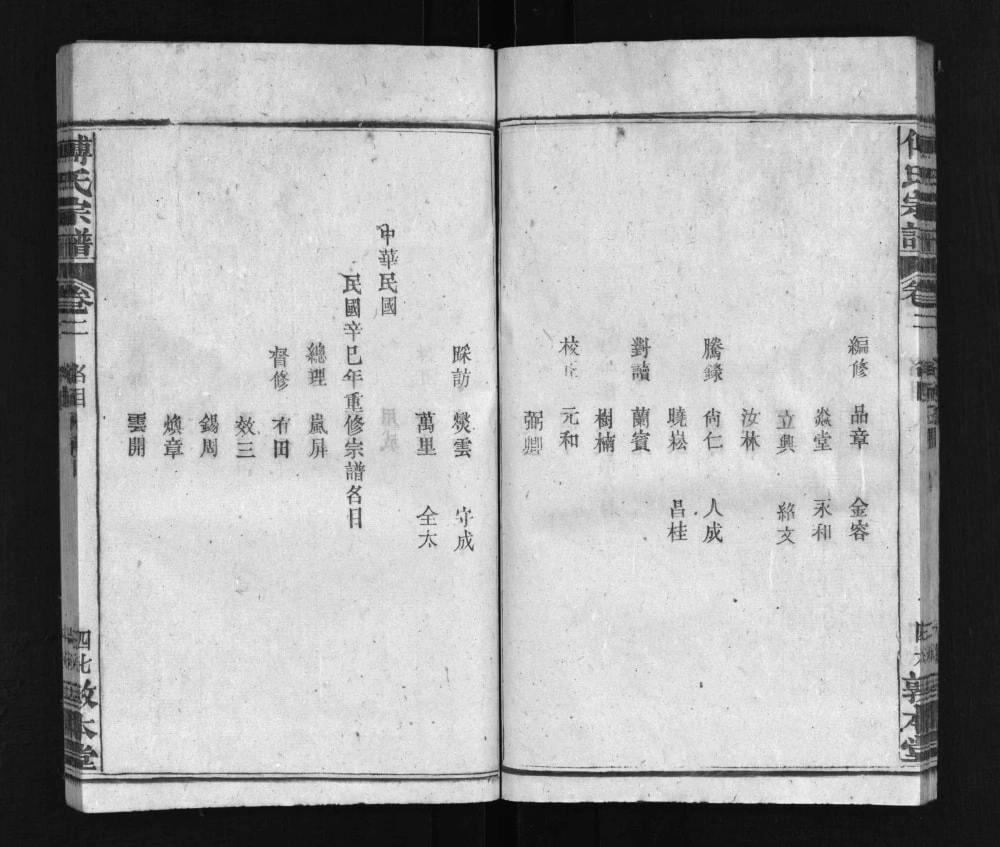 編修 品章 金容
焱堂 永和
立興 絡文
汝林
騰錄 尚仁 人成
曉崧 昌桂
對讀 蘭賓
樹楠
校 元和
弼卿
氏宗譜
卷二
本堂
踩訪 燮雲 守成
萬里 全太
中華民國
民國辛巳年重修宗譜名目
總理 嵐屏
督修 有田
效三
錫周
煥章
雲開
傅氏宗譜
卷二
名目
四七
敦本堂